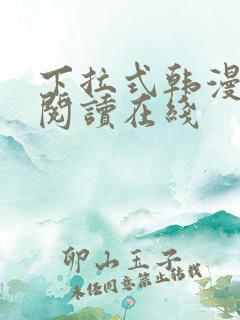 下拉式韩漫
阅讀在线
卯山玉子
未经同意禁止转载